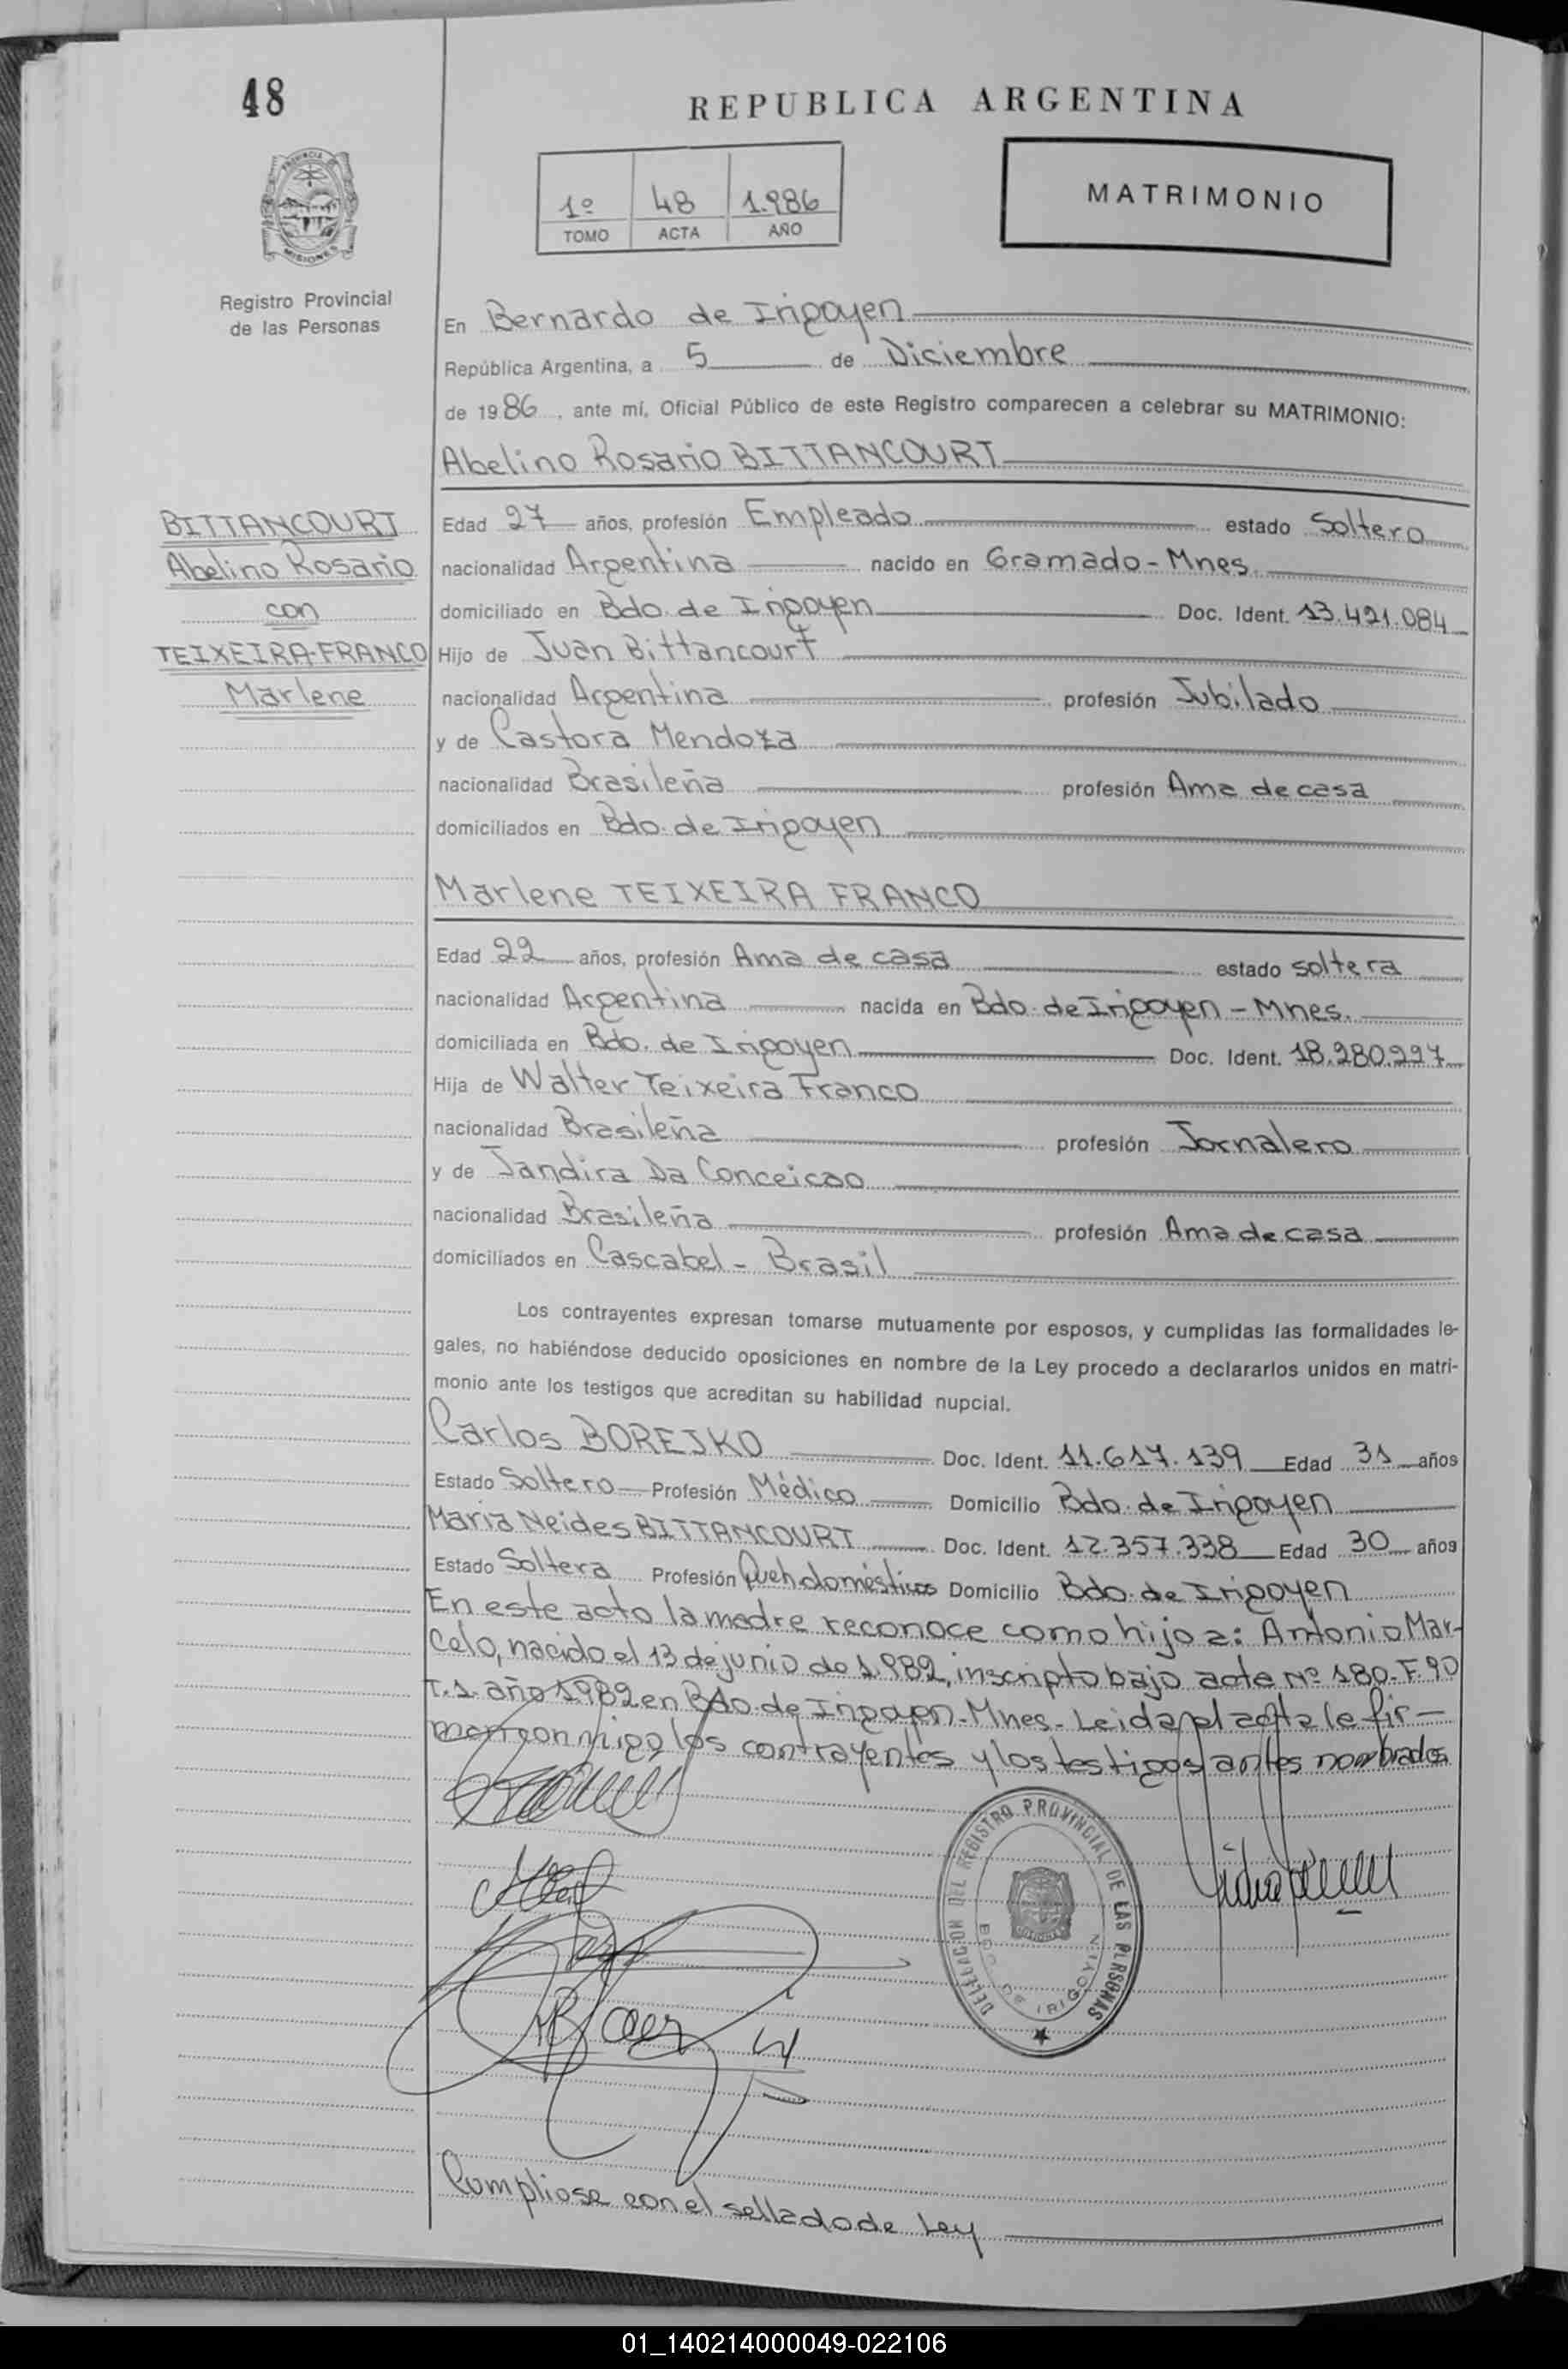 48
REPUBLICA ARGENTINA
PROVINCIA DE
MISIONES
1º 48 1.986
TOMO ACTA AÑO
MATRIMONIO
Registro Provincial
de las Personas
En Bernardo de Irigoyen
República Argentina, a 5 de Diciembre
de 1986, ante mí, Oficial Público de este Registro comparecen a celebrar su MATRIMONIO:
Abelino Rosario BITTANCOURT
BITTANCOURT
Abelino Rosario
con
TEIXEIRA-FRANCO
Marlene
Edad 27 años, profesión Empleado estado Soltero
nacionalidad Argentina nacido en Gramado - Mnes.
domiciliado en Bdo. de Irigoyen Doc. Ident. 13.421.084
Hijo de Juan Bittancourt
nacionalidad Argentina profesión Jubilado
y de Castora Mendoza
nacionalidad Brasileña profesión Ama de casa
domiciliados en Bdo. de Irigoyen
Marlene TEIXEIRA FRANCO
Edad 22 años, profesión Ama de casa estado soltera
nacionalidad Argentina nacida en Bdo. de Irigoyen - Mnes.
domiciliada en Bdo. de Irigoyen Doc. Ident. 18.280.997
Hija de Walter Teixeira Franco
nacionalidad Brasileña profesión Jornalero
y de Jandira Da Conceicao
nacionalidad Brasileña profesión Ama de casa
domiciliados en Cascabel - Brasil
Los contrayentes expresan tomarse mutuamente por esposos, y cumplidas las formalidades le-
gales, no habiéndose deducido oposiciones en nombre de la Ley procedo a declararlos unidos en matri-
monio ante los testigos que acreditan su habilidad nupcial.
Carlos BOREJKO Doc. Ident. 11.617.139 Edad 31 años
Estado Soltero Profesión Médico Domicilio Bdo. de Irigoyen
Maria Neides BITTANCOURT Doc. Ident. 12.357.338 Edad 30 años
Estado Soltera Profesión Queh. domésticos Domicilio Bdo. de Irigoyen
En este acto la madre reconoce como hijo a: Antonio Mar-
celo, nacido el 13 de junio de 1.982, inscripto bajo acta Nº 180-F.90
T.1. año 1982 en Bdo. de Irigoyen - Mnes - Leida el acta le fir-
man conmigo, los contrayentes y los testigos antes nombrados
DELEGACION DEL REGISTRO PROVINCIAL DE LAS PERSONAS
BDO. DE IRIGOYEN
Compliose con el sellado de Ley
01_140214000049-022106